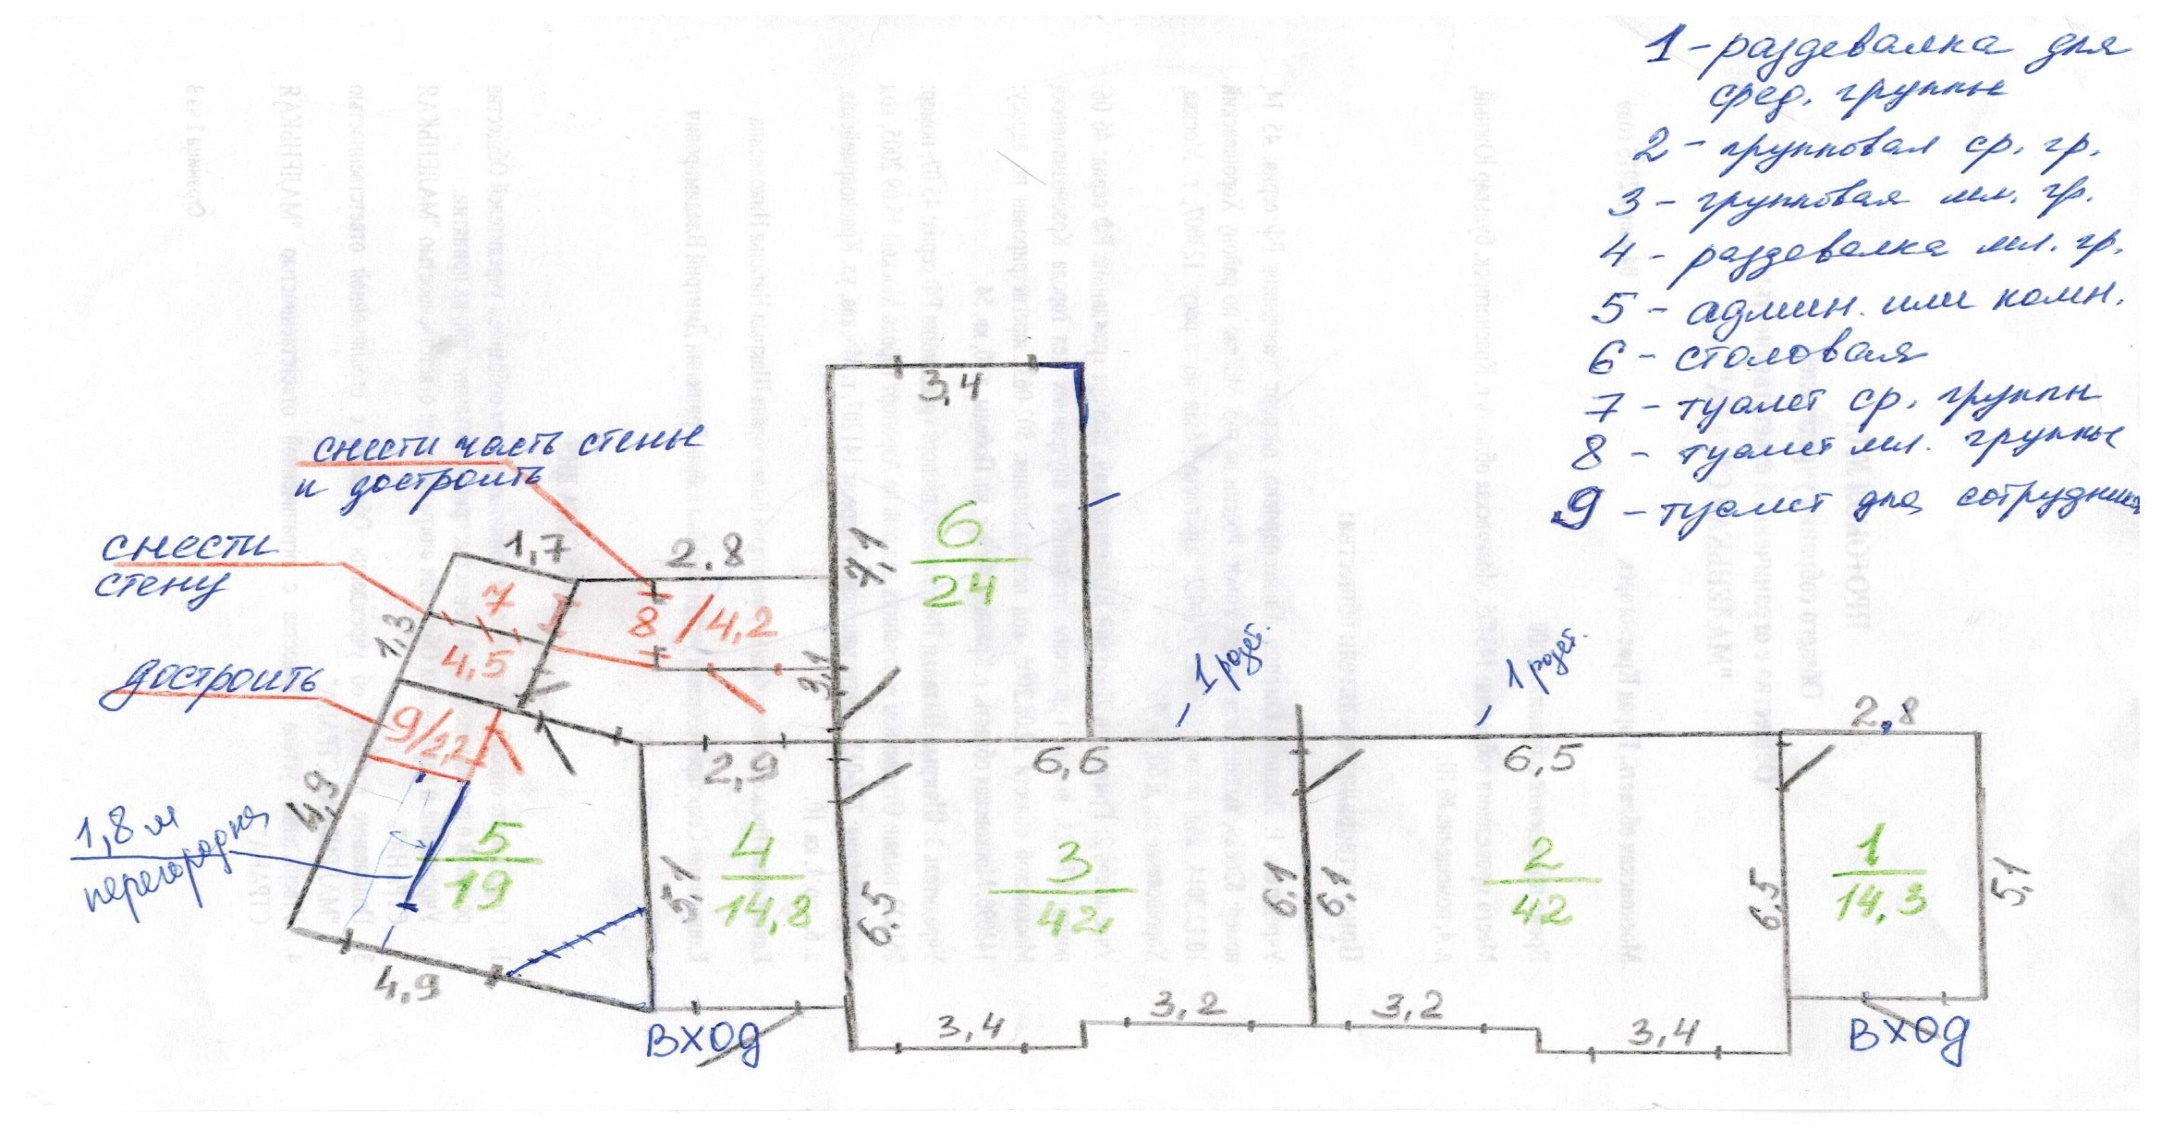 1 - раздевалка для
сред. группы
2 - групповая ср. гр.
3 - групповая мл. гр.
4 - раздевалка мл. гр.
5 - админ. или комн.
6 - столовая
7 - туалет ср. группы
8 - туалет мл. группы
9 - туалет для сотрудников
снести часть стены
и достроить
снести
стену
достроить
1,8 м
перегородка
3,4
7,1
6
24
1,7
2,8
7
4,5
8 / 4,2
1,3
3,1
9/2,2
1 розет.
1 розет.
2,8
2,9
6,6
6,5
4,9
5
19
4
14,8
5,1
6,5
3
42
6,1
6,1
2
42
6,5
1
14,3
5,1
4,9
3,4
3,2
3,2
3,4
вход
вход